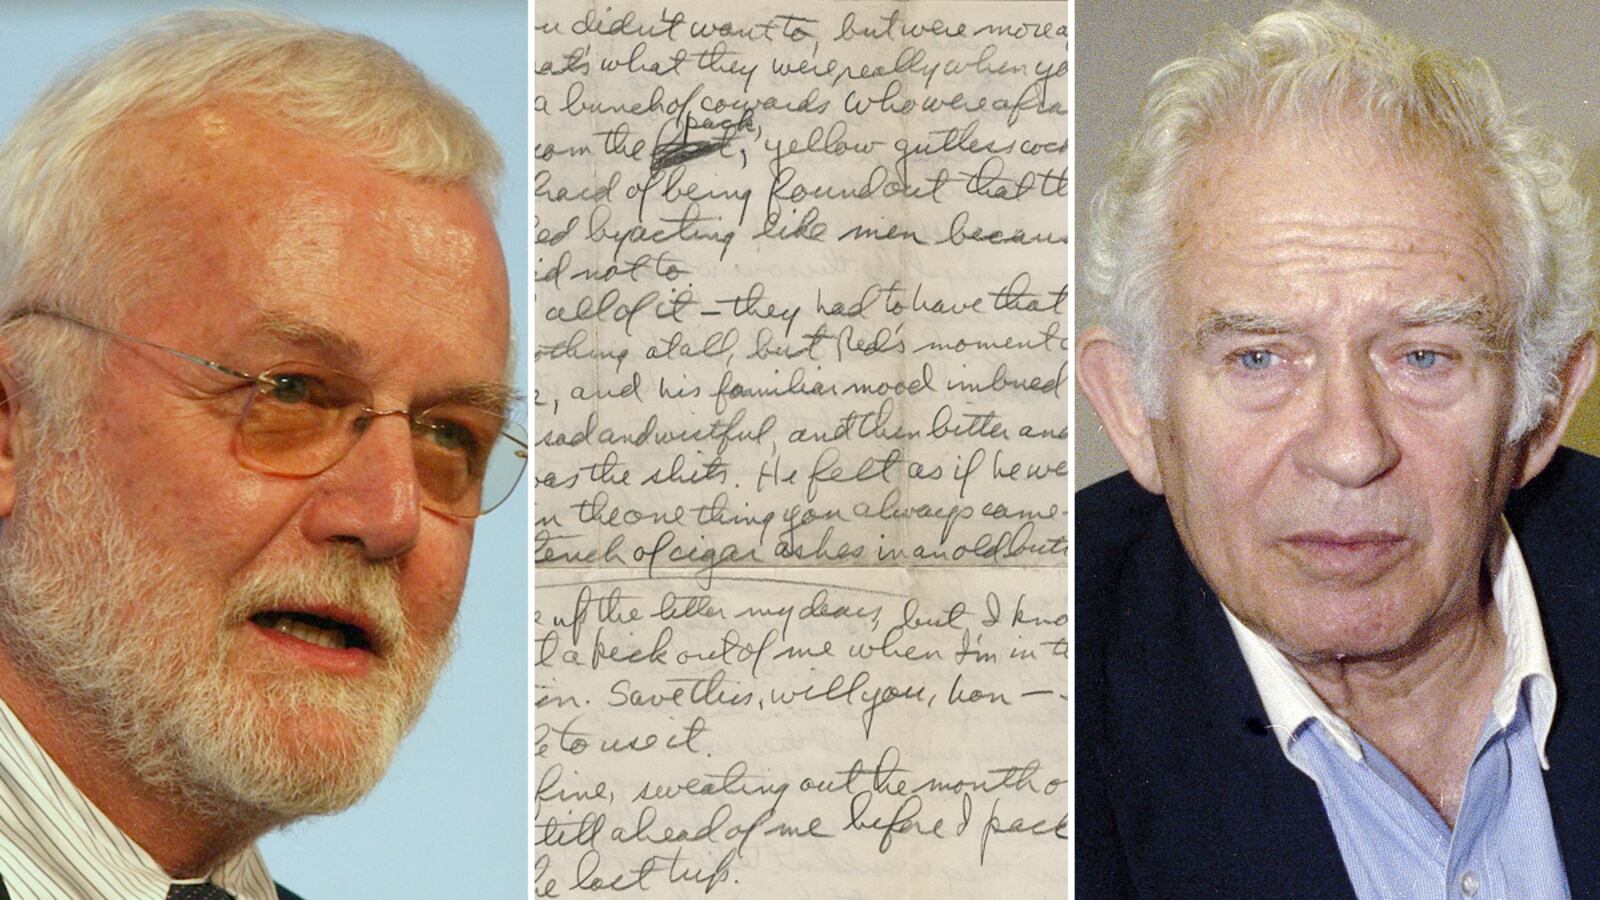 u didn't want to, but were more a
at's what they were really when yo
a bunch of cowards who were afra
pack,
om the , yellow gutless cock
fraid of being found out that th
ed by acting like men becaus
id not to
all of it – they had to have that
othing at all, but Red's moment o
e, and his familiar mood imbued
sad and wistful, and then bitter and
as the shits. He felt as if he we
in the one thing you always came
tench of cigar ashes in an old butt
e up the letter my dears, but I kno
t a kick out of me when I'm in t
in. Save this, will you, hon –
e to use it.
fine, sweating out the month o
till ahead of me before I pack
he last trip.